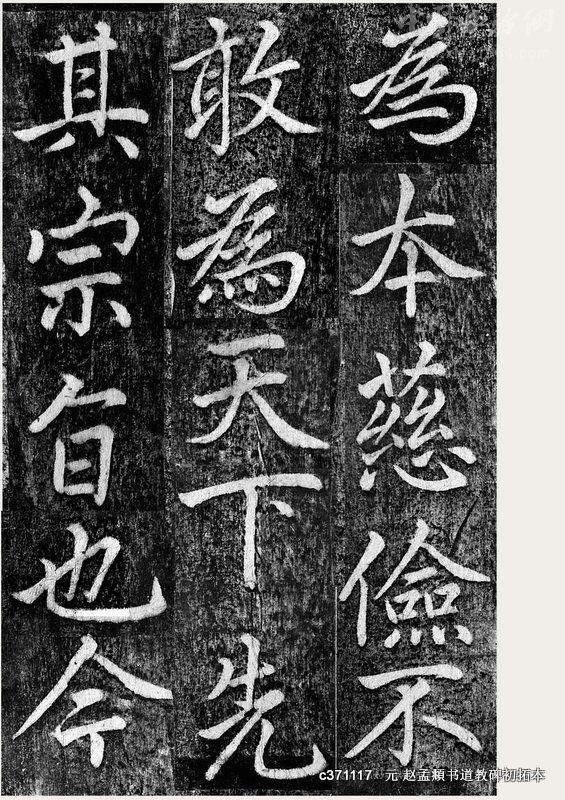 為本慈儉不
敢為天下先
其宗旨也今
c371117 元 赵孟頫书道教碑初拓本